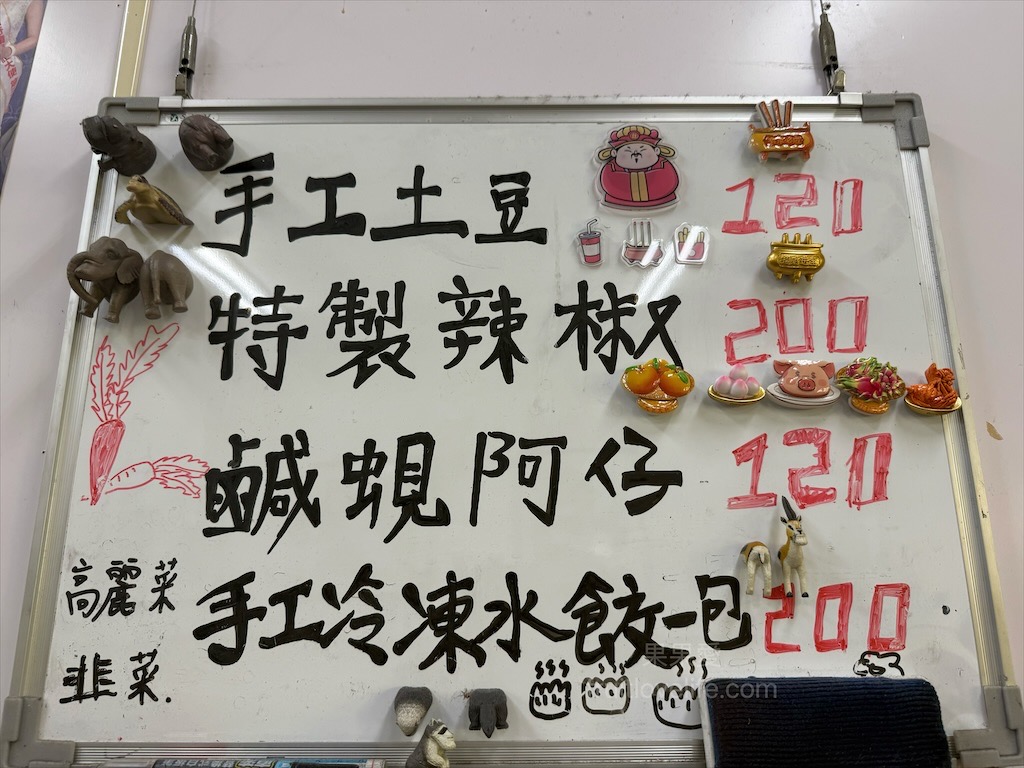 手工土豆 120
特製辣椒 200
鹹蜆阿仔 120
手工冷凍水餃一包 200
高麗菜
韭菜.